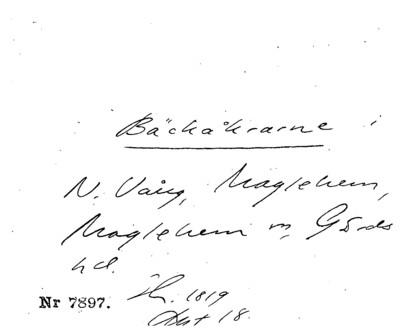 Bäckåkrarne i
N. Vång, Maglehem,
Maglehem sn, Gärds
hd.
Nr 7897. 1819
Akt 18.